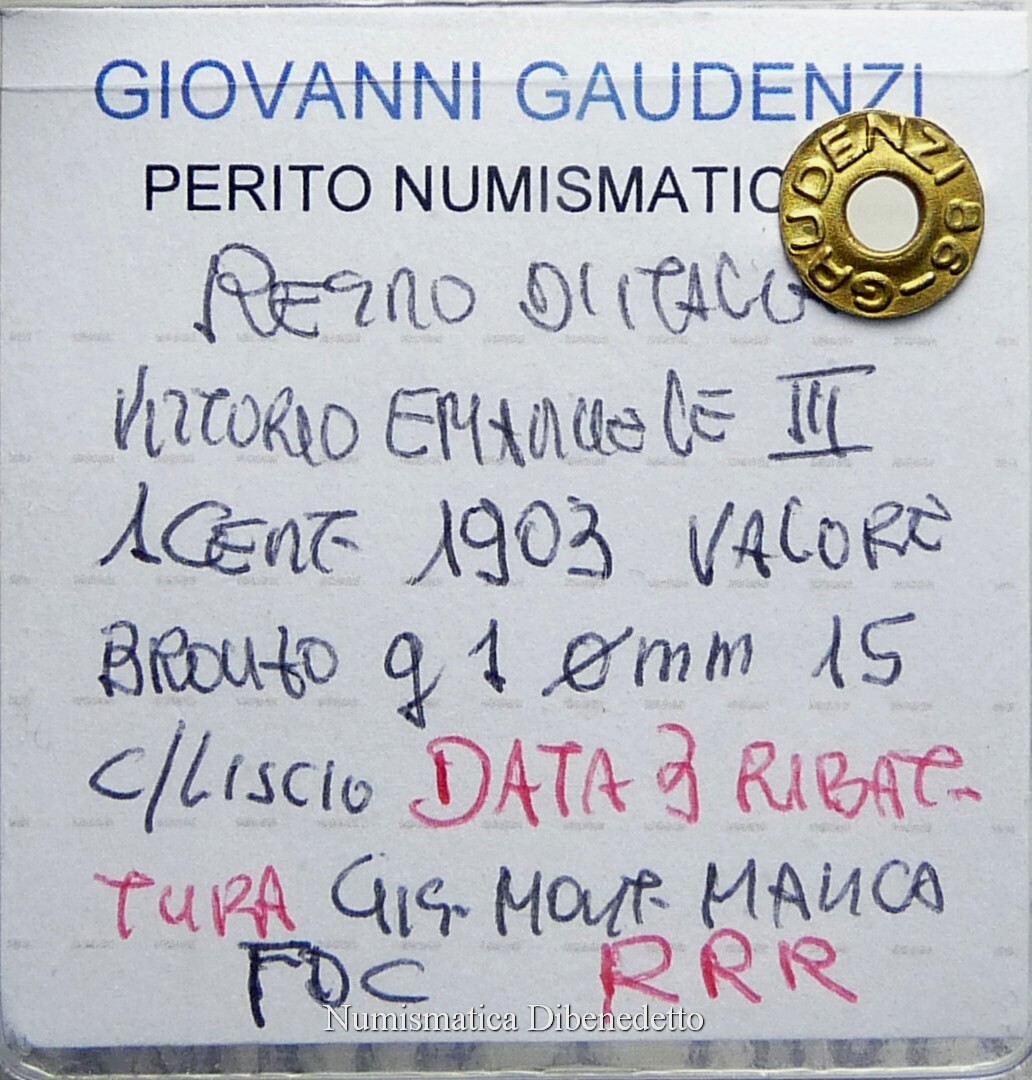 GIOVANNI GAUDENZI
PERITO NUMISMATIC
GAUDENZI 86-
REGNO D'ITALI
VITTORIO EMANUELE III
1 CENT 1903 VALORE
BRONZO g 1 ømm 15
C/LISCIO DATA 3 RIBAT-
TURA GIG. MONT. MANCA
FDC RRR
Numismatica Dibenedetto